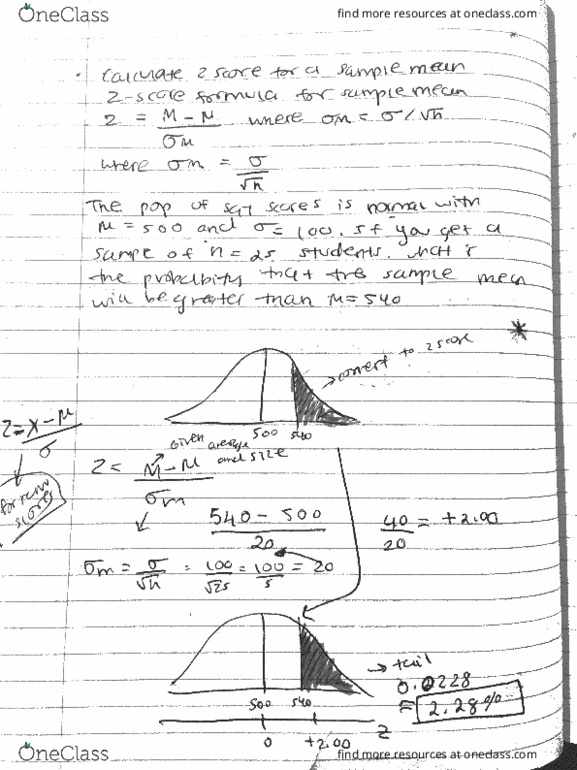 OneClass
find more resources at oneclass.com
• Calculate Z score for a sample mean
Z-score formula for sample mean
Z = M - μ / σM where σM = σ/√n
where σM = σ / √n
The pop of sat scores is normal with
μ = 500 and σ = 100. If you get a
sample of n = 25 students. What is
the probability that the sample mean
will be greater than M = 540
*
convert to z score
500 540
Z = X - μ / σ
for raw scores
given average and size
Z = M - μ / σM
540 - 500 / 20
40 / 20 = +2.00
σM = σ / √n = 100 / √25 = 100 / 5 = 20
→ tail
0.0228
= 2.28%
500 540
Z
0 +2.00
OneClass
find more resources at oneclass.com